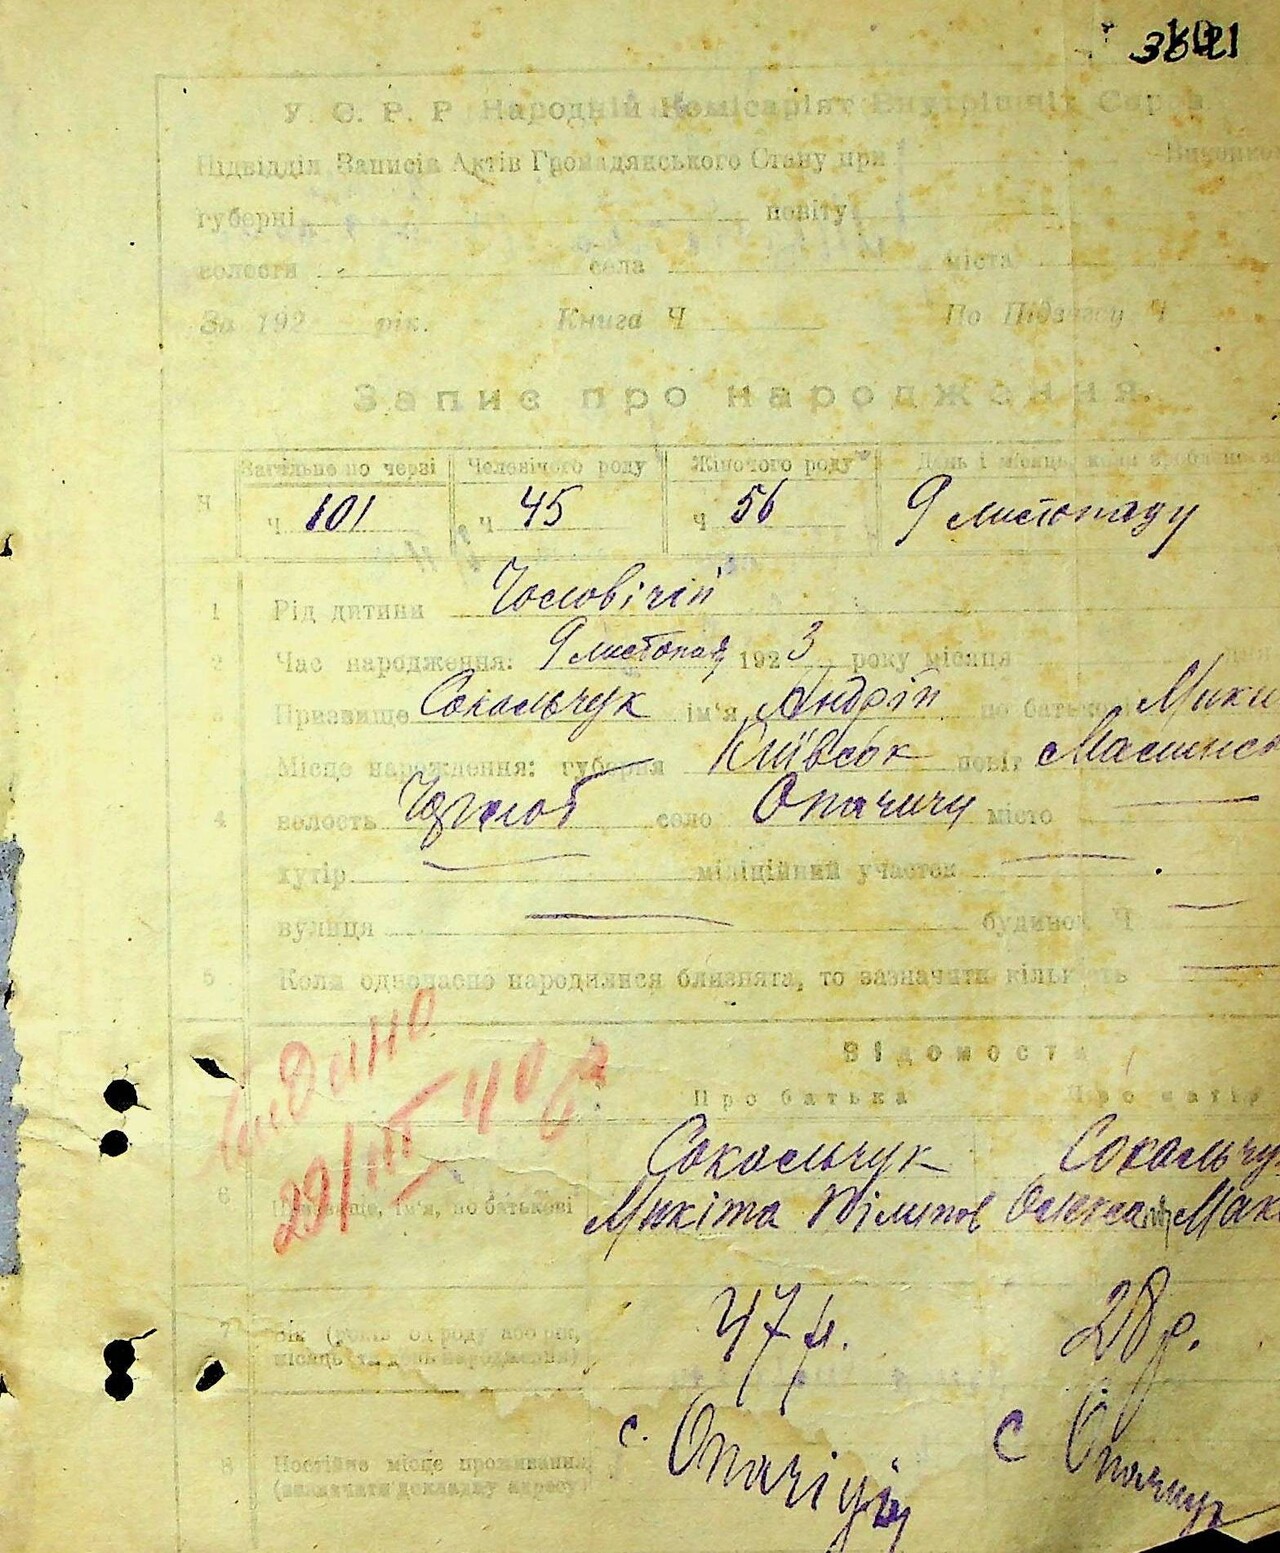 У. С. Р. Р. Народній Комісаріят Внутрішніх Справ
Підвідділ Записів Актів Громадянського Стану при Виконко
губерні повіту
волости села міста
За 192 рік. Книга Ч По Підвідділу Ч
Запис про народження.
Загільне по черзі Человічого роду Жіночого роду День і місяць, коли зроблено
Ч ч 101 ч 45 ч 56 9 листопаду
1 Рід дитини Чоловічій
2 Час народження: 9 листопад 1923 року місяця
3 Призвище Сокольчук ім'я Андрій по батькові Мики
4 Місце народження: губерня Київськ повіт
волость село Опачичи місто
хутір міліційний участок
вулиця будинок Ч
5 Коли одночасно народилися близнята, то зазначити кількість
Відомости
Про батька Про матір
Видано
29/III 40 р
6 Призвище, ім'я, по батькові
Сокольчук Сокольчу
Микіта Пілипов Олександ Мак
7 Вік (років од роду або рік, місяць та день народження) 47 р. 28 р.
8 Постійне місце проживання (зазначати докладну адресу)
с. с